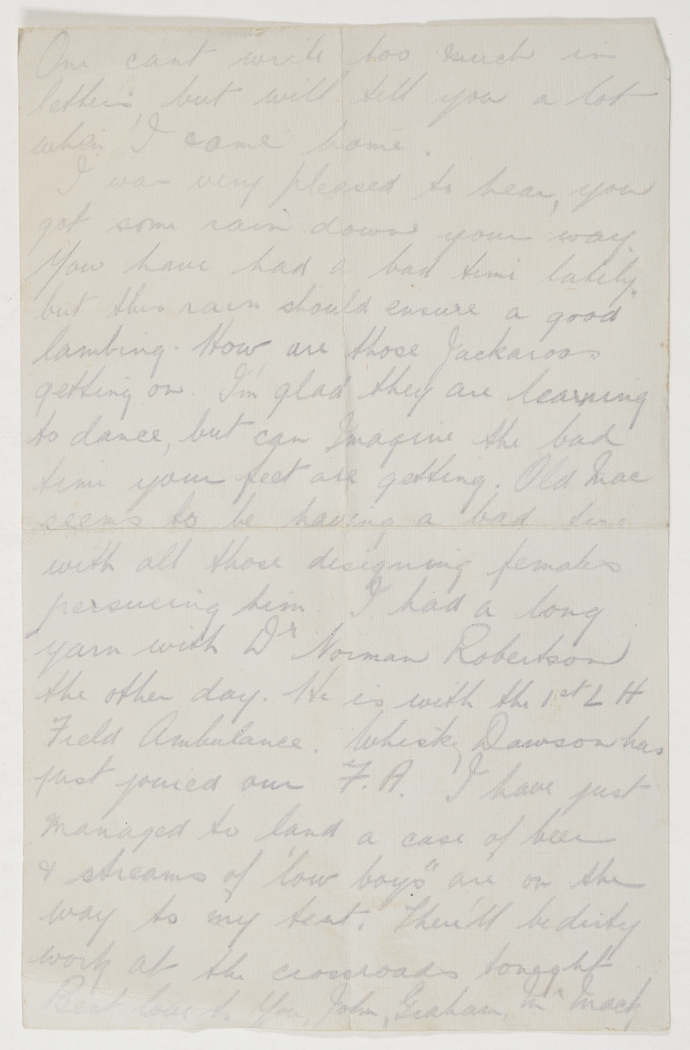 One cant write too much in
letters, but will tell you a lot
when I come home.
I was very pleased to hear, you
got some rain down your way.
You have had a bad time lately,
but this rain should ensure a good
lambing. How are those Jackaroos
getting on. I'm glad they are learning
to dance, but can Imagine the bad
time your feet are getting. Old Mac
seems to be having a bad time
with all those designing females
persueing him. I had a long
yarn with Dr Norman Robertson
the other day. He is with the 1st L H
Field Ambulance. Whisky Dawson has
just joined our F.A. I have just
managed to land a case of beer
& streams of "cow boys" are on the
way to my tent. There'll be dirty
work at the crossroads tonight
Best love to You, John, Graham,